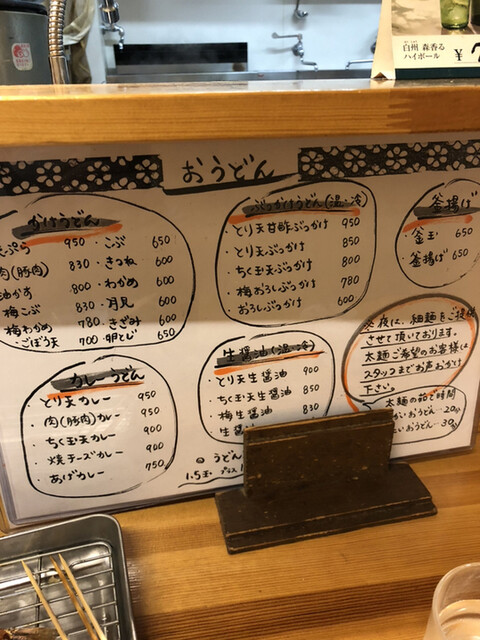 白州 森香る
ハイボール
¥7
おうどん
かけうどん
天ぷら 950
肉(豚肉) 830
油かす 800
梅こぶ 830
梅わかめ 780
・ごぼう天 700
・こぶ 650
・きつね 600
・わかめ 600
・月見 600
・きざみ 600
・卵とじ 650
ぶっかけうどん(温・冷)
・とり天甘酢ぶっかけ 950
・とり天ぶっかけ 850
・ちく玉天ぶっかけ 780
・梅おろしぶっかけ 800
・おろしぶっかけ 600
釜揚げ
・釜玉 650
・釜揚げ 650
カレーうどん
・とり天カレー 950
・肉(豚肉)カレー 950
・ちく玉天カレー 900
・焼チーズカレー 900
・あげカレー 750
生醤油(温・冷)
・とり天生醤油 900
・ちく玉天生醤油 850
・梅生醤油 830
・生醤
夜は、細麺をご提供
させて頂いております。
太麺ご希望のお客様は
スタッフまでお声おかけ
下さい。
太麺の茹で時間
かいおうどん-20分
たいおうどん-30分
◎うどん
1.5玉 プラス1